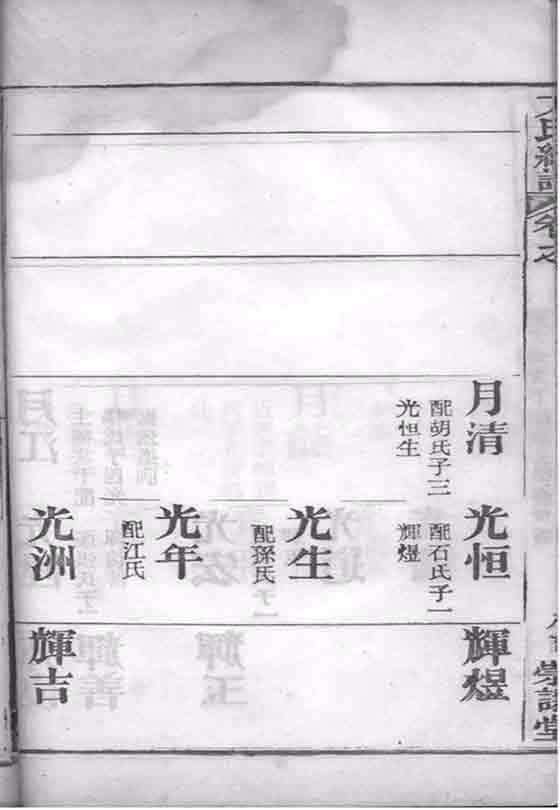 卷之
月清
配胡氏子三
光恒生
光恒
配石氏子一
輝煜
光生
配孫氏子一
光年
配江氏
光洲
輝煜
輝吉